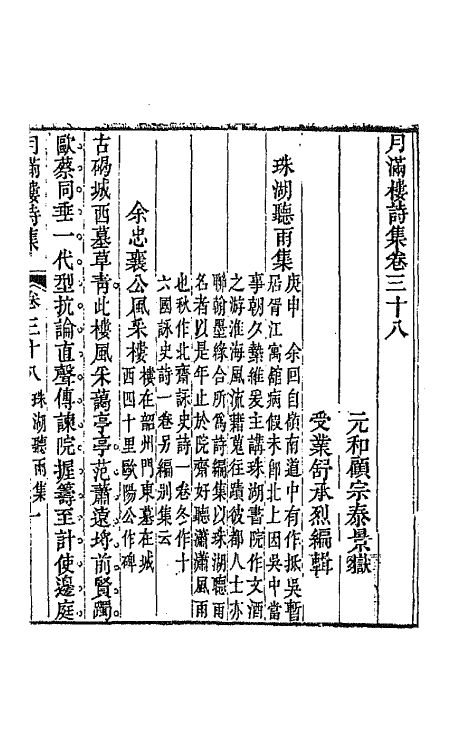 月滿樓詩集卷三十八
元和顧宗泰景嶽
受業舒承烈編輯
珠湖聽雨集
庚申余回自嶺南道中有作抵吳暫
居胥江寓舘病假未即北上因吳中當
事朝久縶維爰主講珠湖書院作文酒
之游淮海風流藉蒐往蹟彼都人士亦
聯翰墨緣合所爲詩編集以珠湖聽雨
名者以是年止於院齋好聽瀟瀟風雨
也秋作北齋詠史詩一卷冬作十
六國詠史詩一卷另編別集云
余忠襄公風采樓
樓在韶州門東墓在城
西四十里歐陽公作碑
古碣城西墓草靑此樓風采藹亭亭范蕭遠埼前賢躅
歐蔡同垂一代型抗論直聲傳諫院握籌至計使邊庭
月滿樓詩集
卷三十八珠湖聽雨集
一